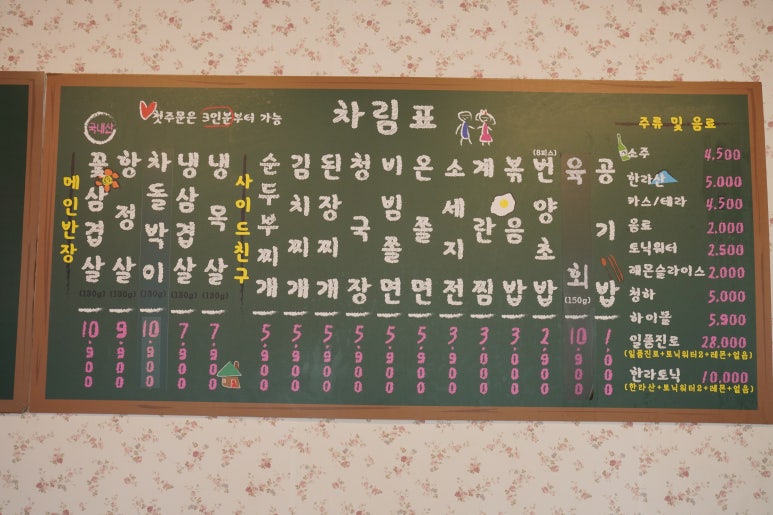 국내산
첫주문은 3인분부터 가능
차림표
메인반장
꽃삼겹살 (130g) 10.900
항정살 (130g) 9.900
차돌박이 (130g) 10.900
냉삼겹살 (130g) 7.900
냉목살 (130g) 7.900
사이드친구
순두부찌개 5.900
김치찌개 5.900
된장찌개 5.900
청국장 5.900
비빔쫄면 5.900
온쫄면 5.900
소세지전 3.900
계란찜 3.900
볶음밥 3.900
(8피스) 번양초밥 2.900
육회 (150g) 10.900
공기밥 1.000
주류 및 음료
소주 4,500
한라산 5.000
카스/테라 4.500
음료 2.000
토닉워터 2.500
레몬슬라이스 2.000
청하 5.000
하이볼 5,900
일품진로 28,000
(일품진로+토닉워터2+레몬+얼음)
한라토닉 10,000
(한라산+토닉워터2+레몬+얼음)